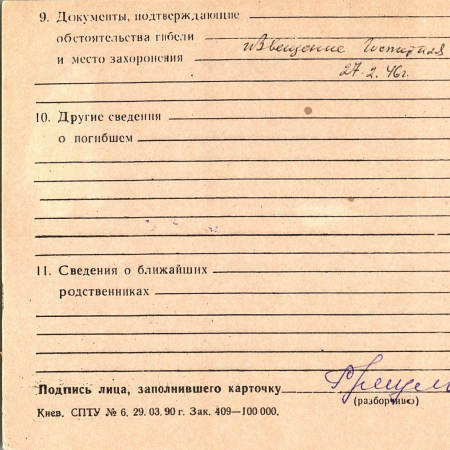 9. Документы, подтверждающие
обстоятельства гибели извещение Госпиталя
и место захоронения 27.2.46г.
10. Другие сведения
о погибшем
11. Сведения о ближайших
родственниках
Подпись лица, заполнившего карточку
(разборчиво)
Киев. СПТУ № 6. 29.03.90 г. Зак. 409—100 000.